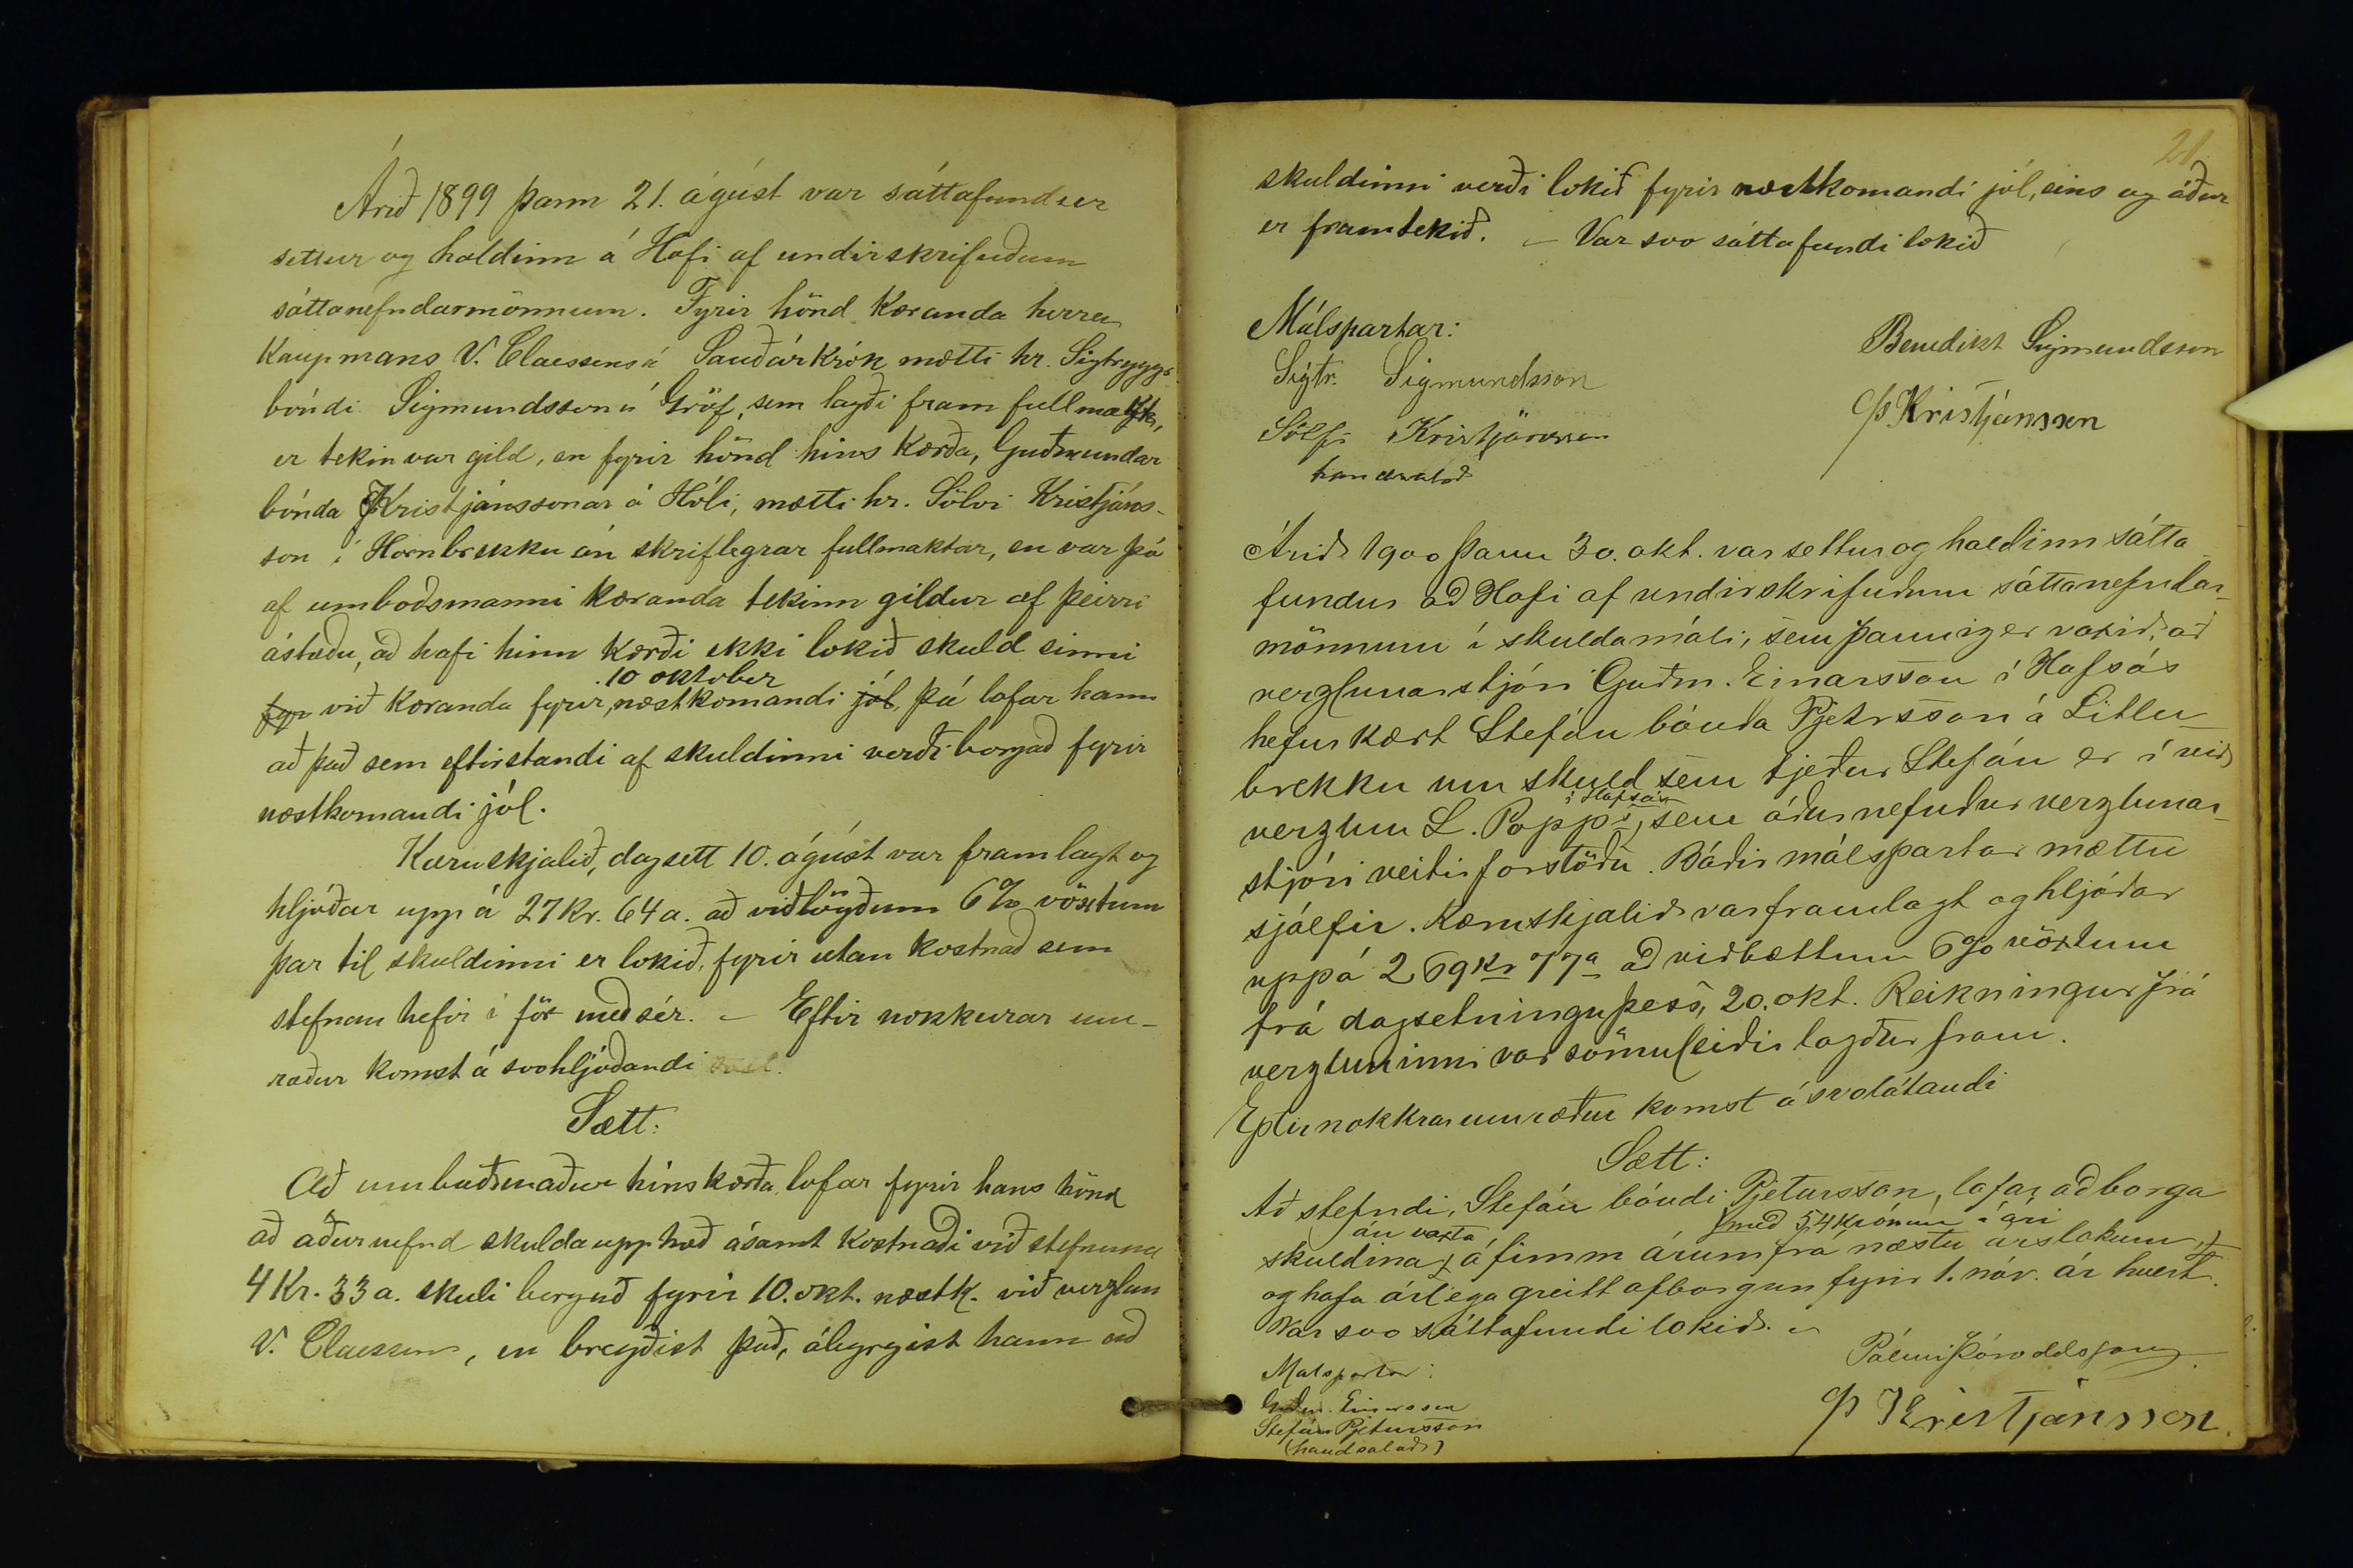 Árið 1899 þann 21. ágúst var sáttafundur
settur og haldinn á Hofi af undirskrifuðum
sáttanefndarmönnum. Fyrir hönd kæranda herra
kaupmans V. Claessens á Sauðárkrók mætti hr. Sigtryggr
bóndi Sigmundsson á Gröf, sem lagði fram fullmakt,
er tekin var gild, en fyrir hönd hins kærða, Guðmundar
bónda Kristjánssonar á Hóli, mætti hr. Sölvi Kristjáns-
son í Hornbrekku án skriflegrar fullmaktar, en var þó
af umboðsmanni kæranda tekinn gildur af þeirri
ástæðu, að hafi hinn kærði ekki lokið skuld sinni
10 oktober
fyr við kæranda fyrir næstkomandi jól, þá lofar hann
að það sem eftirstandi af skuldinni verði borgað fyrir
næstkomandi jól.
Kæruskjalið, dagsett 10. ágúst var framlagt og
hljóðar upp á 27 Kr. 64 a. að viðlögðum 6% vöxtum
þar til skuldinni er lokið, fyrir utan kostnað sem
stefnan hefir í för með sér. – Eftir nokkurar um-
ræður komst á svohljóðandi
Sætt:
Að umboðsmaður hins kærða lofar fyrir hans hönd
að áðurnefnd skuldaupphæð ásamt kostnaði við stefnuna
4 Kr. 33 a. skuli borguð fyrir 10. okt. næstk. við verzlun
V. Claessens, en bregðist það, ábyrgist hann að
21
skuldinni verði lokið fyrir næstkomandi jól, eins og áður
er framtekið. – Var svo sáttafundi lokið
Málspartar:
Benedikt Sigmundsson
Sigtr. Sigmundsson
Þ Kristjánsson
Sölfi Kristjánsson
handsalað
Árið 1900 þann 30. okt. var settur og haldinn sátta
fundur að Hofi af undirskrifuðum sáttanefndar-
mönnum í skuldamáli, sem þannig er varið, að
verzlunarstjóri Guðm. Einarsson í Hofsós
hefur kært Stefán bónda Pjetursson á Litlu-
brekku um skuld sem tjeður Stefán er í við
í Hofsós
verzlun L. Popps, sem áðurnefndur verzlunar-
stjóri veitir forstöðu. Báðir málspartar mættu
sjálfir. Kæruskjalið var framlagt og hljóðar
uppá 269 Kr 77 a að viðbættum 6% vöxtum
frá dagsetningu þess, 20. okt. Reikningur frá
verzluninni var sömuleiðis lagður fram.
Eptir nokkrar umræður komst á svolátandi
Sætt:
Að stefndi, Stefán bóndi Pjetursson, lofar að borga
án vaxta
með 54 krónum í ári
skuldina á fimm árum frá næstu árslokum,
og hafa árlega greitt afborgun fyrir 1. nóv. ár hvert.
Var svo sáttafundi lokið. –
Pálmi Þóroddsson
Málspartar:
Guðm. Einarsson
Þ Kristjánsson
Stefán Pjetursson
(handsalað)